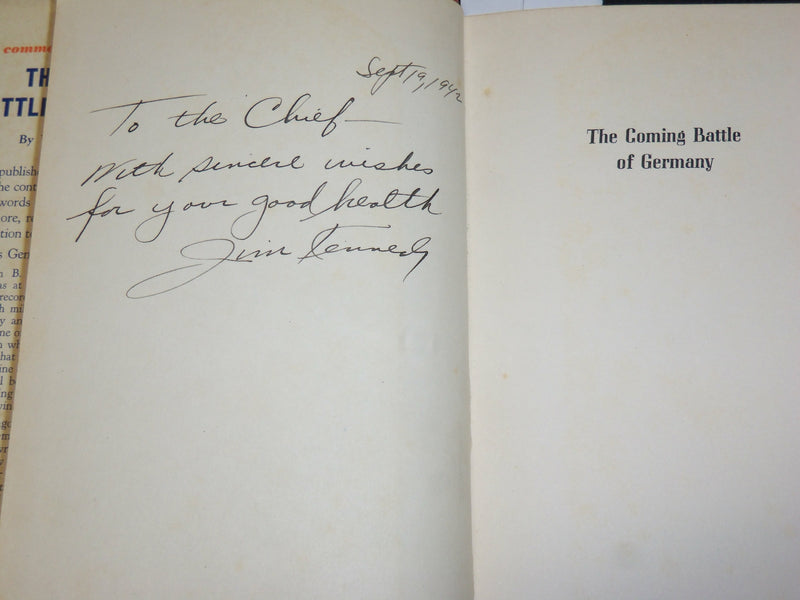 comm
TH
TTL
By
publish
he cont
words
ore, r
tion t
s Ger
n B.
as at
recor
h mi
y an
ne o
n wh
that
ine
l b
ing
vin
Sept 19, 1942
To the Chief—
With sincere wishes
for your good health
Jim Kennedy
The Coming Battle
of Germany